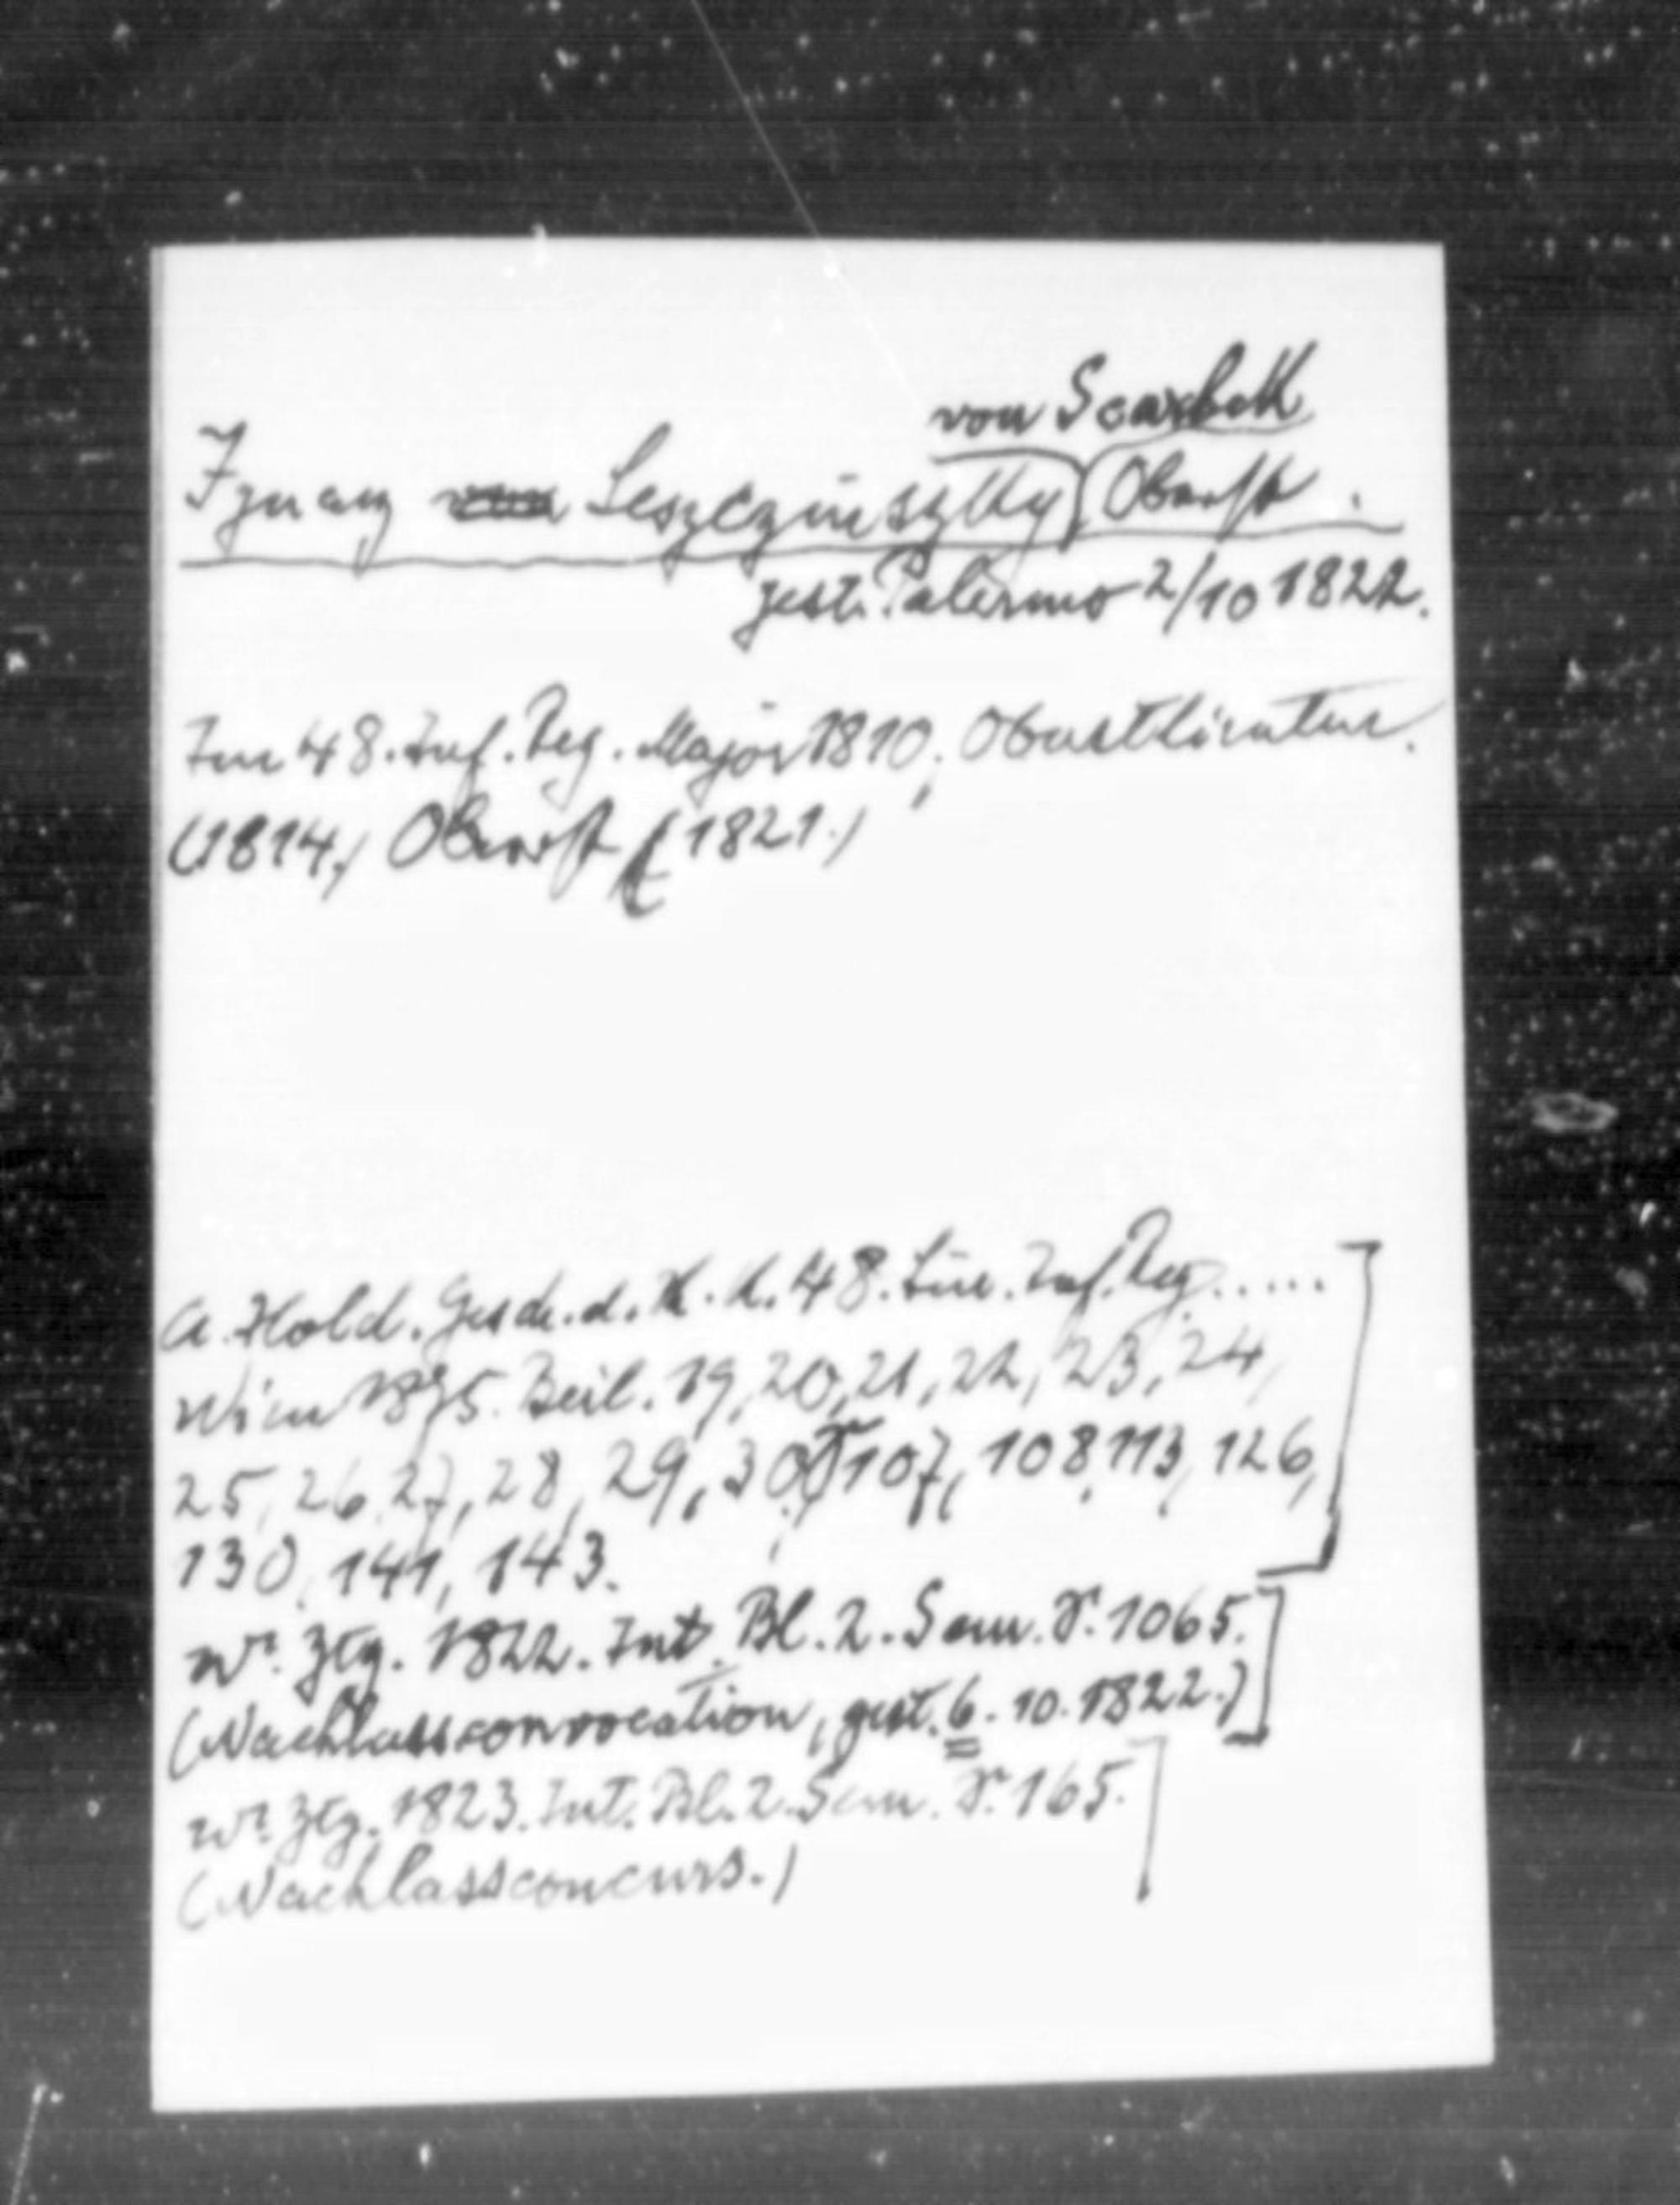 von Scarbek
Ignaz von Leszczinszky Oberst.
gest. Palermo 2/10 1822.
Im 48. Inf. Reg. Major 1810; Oberstlieuten.
(1814.) Oberst (1821.)
A. Hold. Gesch. d. K. K. 48. Lin. Inf. Reg.....
Wien 1875. Beil. 19, 20, 21, 22, 23, 24,
25, 26, 27, 28, 29, 30, 107, 108, 113, 126,
130, 141, 143.
Wr. Ztg. 1822. Int. Bl. 2. Sem. S. 1065.
(Nachlassconvocation, gest. 6. 10. 1822.)
Wr. Ztg. 1823. Int. Bl. 2. Sem. S. 165.
(Nachlassconcurs.)